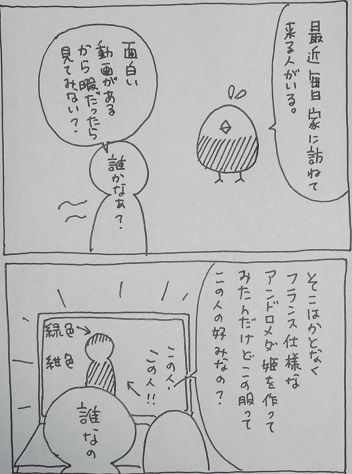 最近毎日家に訪ねて
来る人がいる。
面白い
動画がある
から暇だったら
見てみない?
誰かなあ?
そこはかとなく
フランス仕様な
アンドロメダ姫を作って
みたんだけどこの服って
この人の好みなの?
この人、
この人!!
緑色
紺色
誰なの